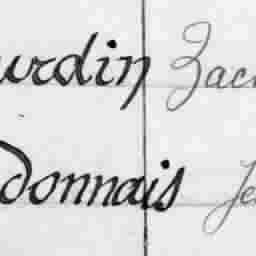 urdin Zac
donnais Je